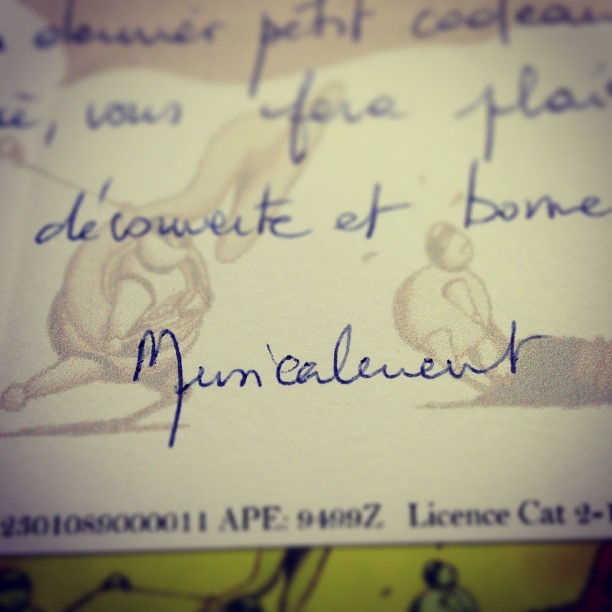 donner petit cadeau
, vous fera plais
découverte et bonne
Musicalement
2301089000011 APE: 9499Z Licence Cat 2-1